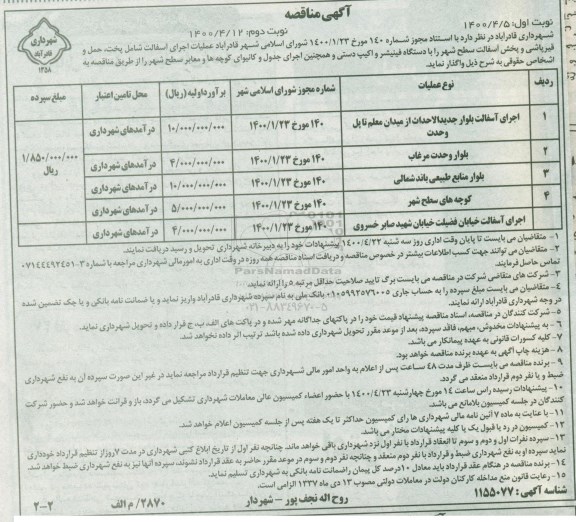 آگهی مناقصه
نوبت اول: ۱۴۰۰/۴/۵
نوبت دوم: ۱۴۰۰/۴/۱۲
شهرداری
قادرآباد
۱۳۵۸
شهرداری قادرآباد در نظر دارد با استناد مجوز شماره ۱۴۰ مورخ ۱۴۰۰/۱/۲۳ شورای اسلامی شهر قادرآباد عملیات اجرای آسفالت شامل پخت، حمل و
قیرپاشی و پخش آسفالت سطح شهر را با دستگاه فینیشر و اکیپ دستی و همچنین اجرای جدول و کانیوای کوچه ها و معابر سطح شهر را از طریق مناقصه به
اشخاص حقوقی به شرح ذیل واگذار نماید.
ردیف نوع عملیات شماره مجوز شورای اسلامی شهر برآورد اولیه (ریال) محل تامین اعتبار مبلغ سپرده
۱ اجرای آسفالت بلوار جدیدالاحداث از میدان معلم تا پل وحدت ۱۴۰ مورخ ۱۴۰۰/۱/۲۳ ۱۰/۰۰۰/۰۰۰/۰۰۰ درآمدهای شهرداری ۱/۸۵۰/۰۰۰/۰۰۰ ریال
۲ بلوار وحدت مرغاب ۱۴۰ مورخ ۱۴۰۰/۱/۲۳ ۴/۰۰۰/۰۰۰/۰۰۰ درآمدهای شهرداری
۳ بلوار منابع طبیعی باند شمالی ۱۴۰ مورخ ۱۴۰۰/۱/۲۳ ۱۰/۰۰۰/۰۰۰/۰۰۰ درآمدهای شهرداری
۴ کوچه های سطح شهر ۱۴۰ مورخ ۱۴۰۰/۱/۲۳ ۵/۰۰۰/۰۰۰/۰۰۰ درآمدهای شهرداری
اجرای آسفالت خیابان فضیلت خیابان شهید صابر خسروی ۱۴۰ مورخ ۱۴۰۰/۱/۲۳ ۴/۰۰۰/۰۰۰/۰۰۰ درآمدهای شهرداری
۱- متقاضیان می بایست تا پایان وقت اداری روز سه شنبه ۱۴۰۰/۴/۲۲ پیشنهادات خود را به دبیرخانه شهرداری تحویل و رسید دریافت نمایند.
۲- متقاضیان می توانند جهت کسب اطلاعات بیشتر در خصوص مناقصه و دریافت اسناد مناقصه همه روزه در وقت اداری به امور مالی شهرداری مراجعه با شماره
تماس حاصل فرمایند.
۳- شرکت های متقاضی شرکت در مناقصه می بایست برگ تایید صلاحیت حداقل مرتبه ۵ را ارائه نماید.
۴- متقاضیان می بایست مبلغ سپرده را به حساب جاری ۰۱۰۵۹۹۲۵۷۶۰۰۵ بانک ملی به نام سپرده شهرداری قادرآباد واریز نماید و یا ضمانت نامه بانکی و یا چک تضمین شده
در وجه شهرداری قادرآباد ارائه نمایند.
۵- شرکت کنندگان در مناقصه، اسناد مناقصه پیشنهاد قیمت خود را در پاکتهای جداگانه مهر شده و در پاکت های الف، ب، ج قرار داده و تحویل شهرداری نماید.
۶- به پیشنهادات مخدوش، مبهم، فاقد سپرده، بعد از موعد مقرر تحویل شهرداری داده شده باشد ترتیب اثر داده نخواهد شد.
۷- کلیه کسورات قانونی به عهده پیمانکار می باشد.
۸- هزینه چاپ آگهی به عهده برنده مناقصه خواهد بود.
۹- برنده مناقصه می بایست ظرف مدت ۴۸ ساعت پس از اعلام به واحد امور مالی شهرداری جهت تنظیم قرارداد مراجعه نماید در غیر این صورت سپرده آن به نفع شهرداری
ضبط و یا نفر دوم قرارداد منعقد می گردد.
۱۰- پیشنهادات رسیده راس ساعت ۱۴ مورخ چهارشنبه ۱۴۰۰/۴/۲۳ با حضور اعضاء کمیسیون عالی معاملات شهرداری تشکیل می گردد، باز و قرائت خواهد شد و حضور شرکت
کنندگان در جلسه کمیسیون بلامانع می باشد.
۱۱- با عنایت به ماده ۷ آئین نامه مالی شهرداری ها رای کمیسیون حداکثر تا یک هفته پس از جلسه کمیسیون اعلام خواهد شد.
۱۲- کمیسیون در رد یا قبول یک یا کلیه پیشنهادات مختار می باشد.
۱۳- سپرده نفرات اول و دوم و سوم تا انعقاد قرارداد با نفر اول نزد شهرداری باقی خواهد ماند. چنانچه نفر اول از تاریخ ابلاغ کتبی شهرداری در مدت ۷ روز از تنظیم قرارداد خودداری
نماید سپرده او به نفع شهرداری ضبط و قرارداد با نفر دوم منعقد و چنانچه نفر دوم و سوم در موعد مقرر حاضر به عقد قرارداد نشوند، سپرده آنها نیز به نفع شهرداری ضبط خواهد شد.
۱۴- برنده مناقصه در هنگام عقد قرارداد باید معادل ۱۰ درصد کل پیمان را ضمانت نامه بانکی به شهرداری تسلیم نماید.
۱۵- رعایت قانون منع مداخله کارکنان دولت در معاملات دولتی مصوب ۱۳ دی ماه ۱۳۳۷ الزامی است.
شناسه آگهی: ۱۱۵۵۰۷۷
روح اله نجف پور - شهردار
۲۸۷۰/ م الف
۲-۲
ParsNamadData
۰۲۱-۸۸۳۴۹۶۷۰-۵